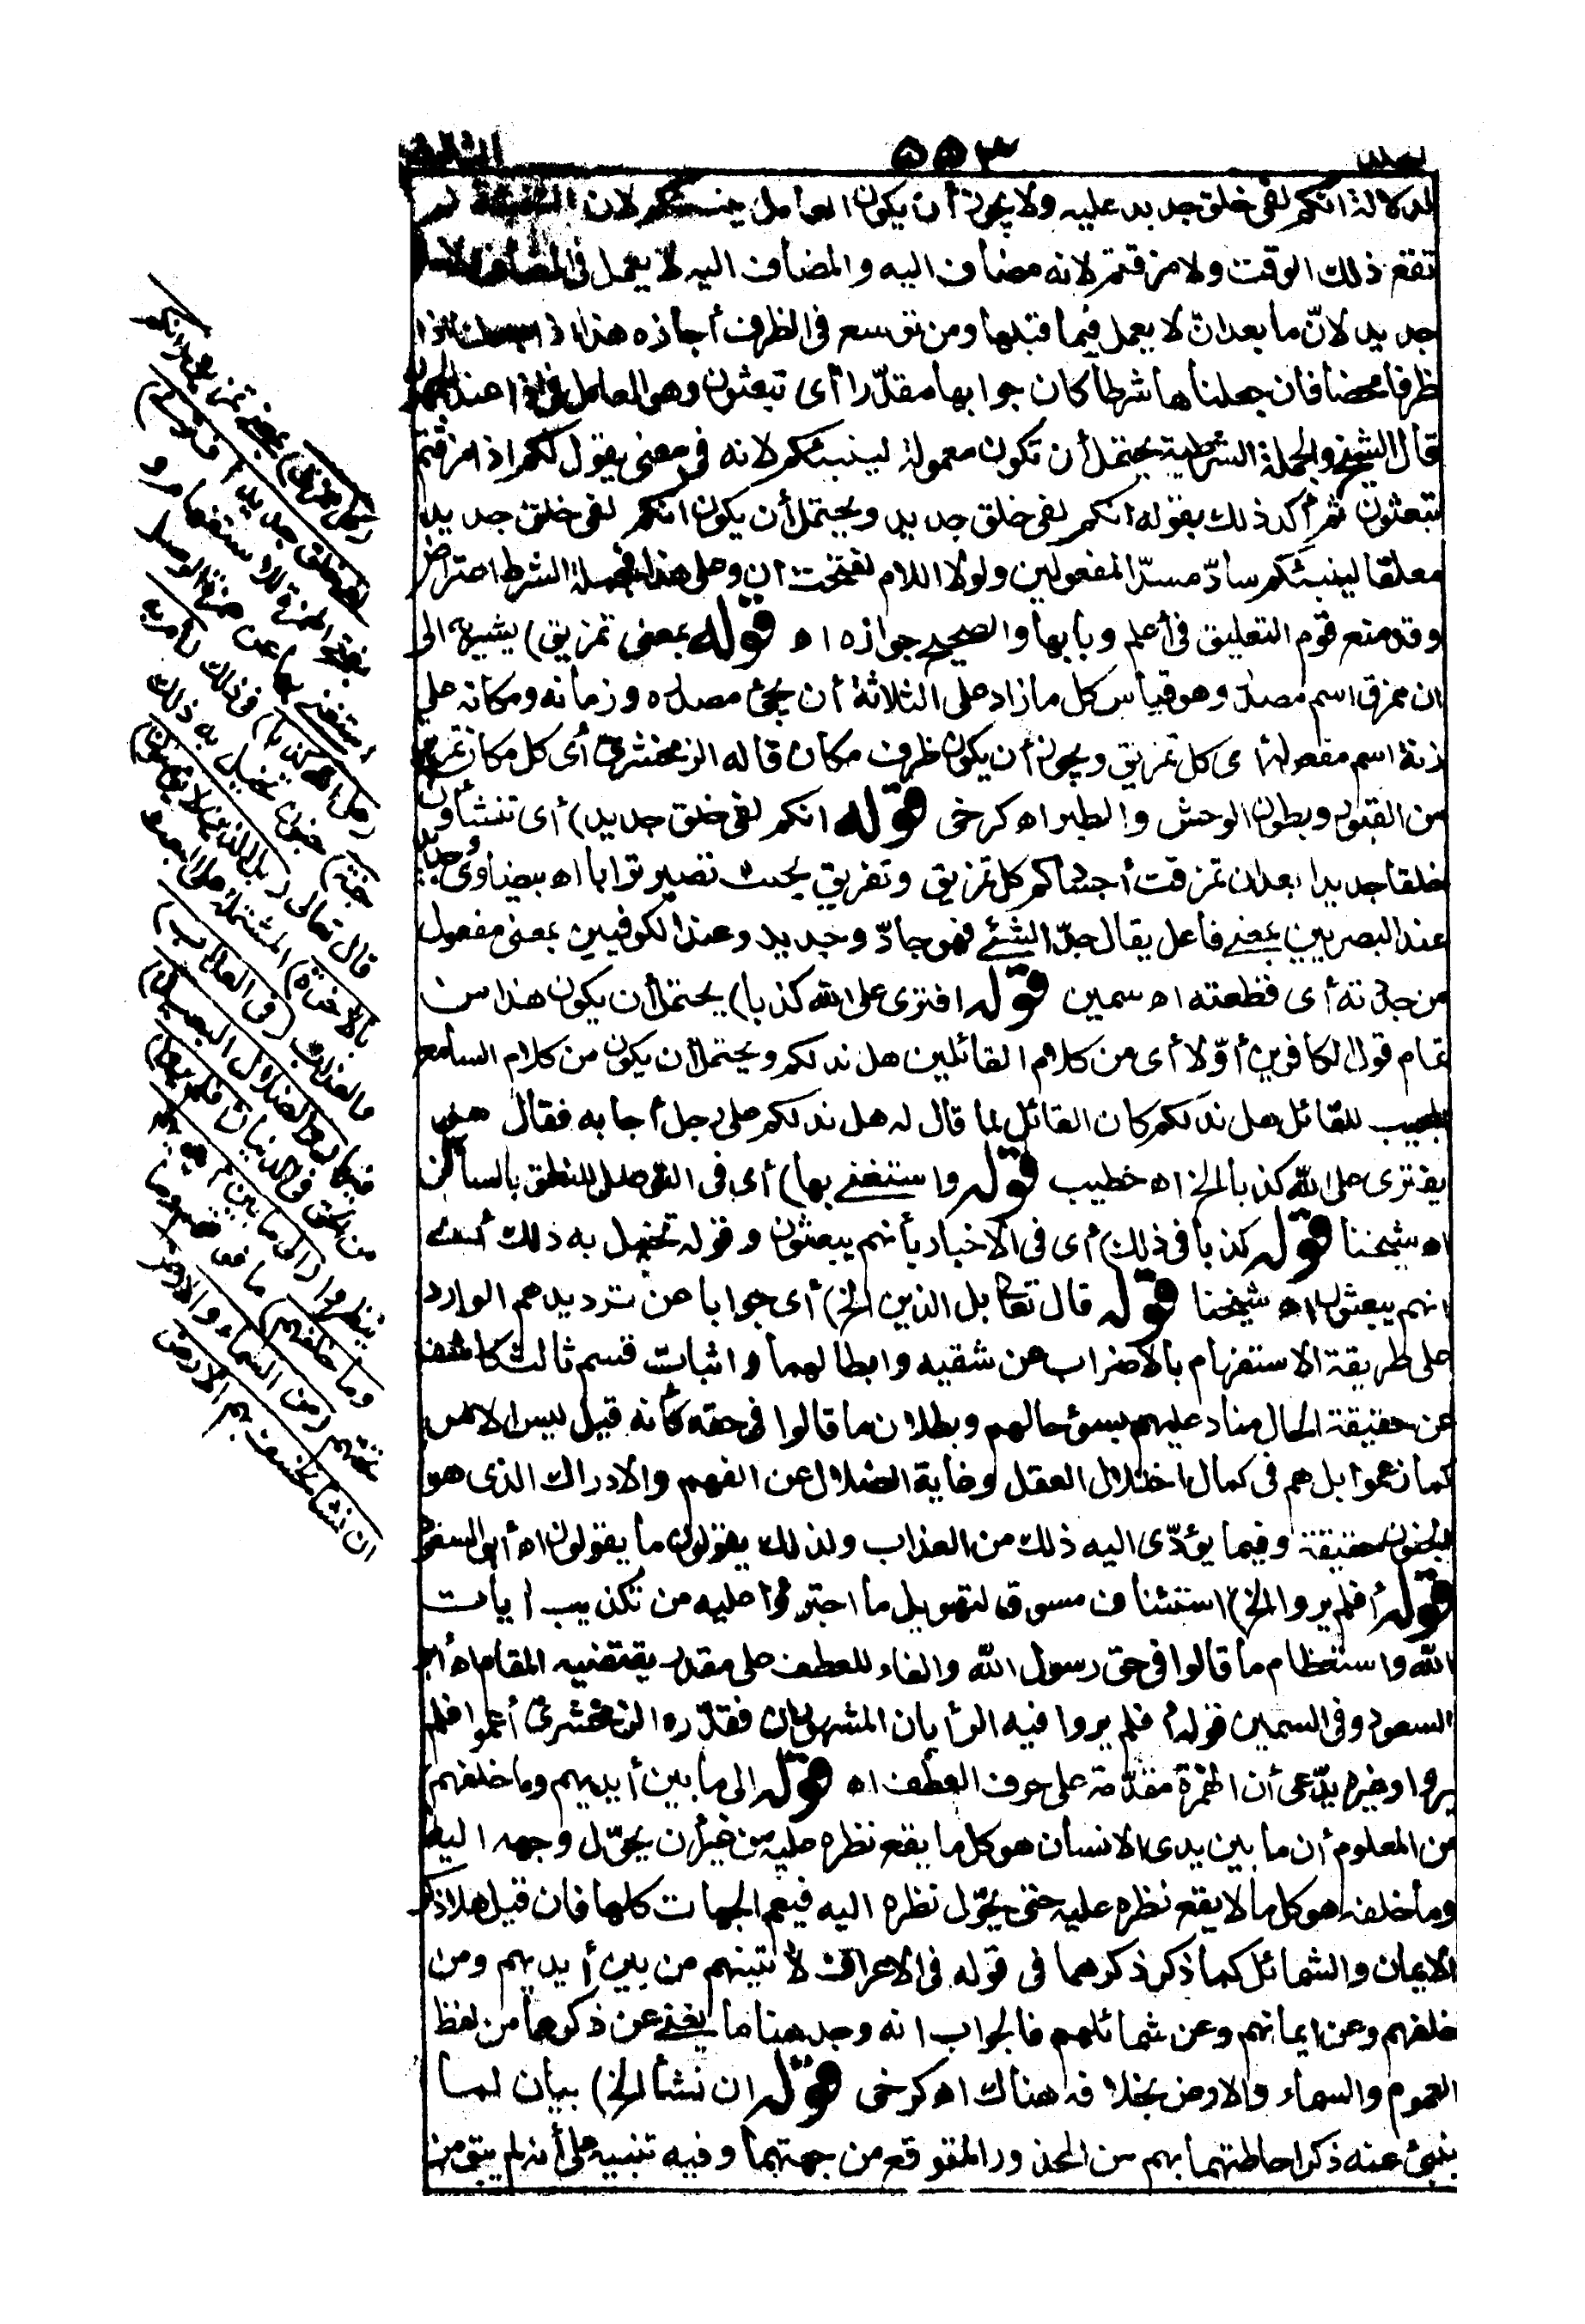 الثالث ٥٥٣
لدلالة انكم لفى خلق جديد عليه ولا يجوز أن يكون العامل ينبئكم لان التنبئة لم
تقع ذلك الوقت ولا مزقتم لانه مضاف اليه والمضاف اليه لا يعمل فى المضاف ولا
جديد لانّ ما بعد انّ لا يعمل فيما قبلها ومن توسع فى الظرف أجازه هذا اذا جعلت اذا
ظرفا محضا فان جعلناها شرطا كان جوابها مقدّرا أى تبعثون وهو العامل فى اذا عند الجمهور
قال الشيخ والجملة الشرطية يحتمل أن تكون معمولة لينبئكم لانه فى معنى يقول لكم اذا مزقتم
تبعثون ثم أكد ذلك بقوله انكم لفى خلق جديد ويحتمل أن يكون انكم لفى خلق جديد
معلقا لينبئكم سادّ مسدّ المفعولين ولولا اللام لفتحت ان وعلى هذا فجملة الشرط اعتراض
وقد منع قوم التعليق فى أعلم وبابها والصحيح جوازه اه قوله بمعنى تمزيق) يشير الى
ان ممزق اسم مصدر وهو قياس كل ما زاد على الثلاثة أن يجئ مصدره وزمانه ومكانه على
زنة اسم مفعوله أى كل تمزيق ويجوز أن يكون ظرف مكان قاله الزمخشرى أى كل مكان تمزيق
من القبور وبطون الوحش والطير اه كرخى قوله انكم لفى خلق جديد) أى تنشأون
خلقا جديدا بعد أن تمزقت أجسادكم كل تمزيق وتفريق بحيث تصير ترابا اه بيضاوى وجديد
عند البصريين بمعنى فاعل يقال جدّ الشئ فهو جادّ وجديد وعند الكوفيين بمعنى مفعول
من جددته أى قطعته اه سمين قوله افترى على الله كذبا) يحتمل أن يكون هذا من
تمام قول الكافرين أوّلا أى من كلام القائلين هل ندلكم ويحتمل أن يكون من كلام السامع
المجيب للقائل هل ندلكم كان القائل لما قال له هل ندلكم على رجل أجابه فقال هو
يفترى على الله كذبا الخ اه خطيب قوله واستغنى بها) أى فى التوصل للنطق بالساكن
اه شيخنا قوله كذبا فى ذلك) أى فى الاخبار بأنهم يبعثون وقوله تخيل به ذلك أى
انهم يبعثون اه شيخنا قوله قال تعالى بل الذين الخ) أى جوابا عن ترديدهم الوارد
على طريقة الاستفهام بالاضراب عن شقيه وابطالهما واثبات قسم ثالث كاشف
عن حقيقة الحال مناد عليهم بسوء حالهم وبطلان ما قالوا فى حقه كأنه قيل ليس الامر
كما زعموا بل هم فى كمال اختلال العقل وغاية الضلال عن الفهم والادراك الذى هو
الجنون حقيقة وفيما يؤدّى اليه ذلك من العذاب ولذلك يقولون ما يقولون اه أبو السعود
قوله أفلم يروا الخ) استئناف مسوق لتهويل ما اجترؤا عليه من تكذيب آيات
الله واستعظام ما قالوا فى حق رسول الله والفاء للعطف على مقدر يقتضيه المقام اه أبو
السعود وفى السمين قوله أفلم يروا فيه الرأيان المشهوران فقدّره الزمخشرى أعموا فلم
يروا وغيره يدّعى أن الهمزة مقدّمة على حرف العطف اه قوله الى ما بين أيديهم وما خلفهم)
من المعلوم أن ما بين يدى الانسان هو كل ما يقع نظره عليه من غير أن يحوّل وجهه اليه
وما خلفه هو كل ما لا يقع نظره عليه حتى يحوّل نظره اليه فيعم الجهات كلها فان قيل هلا ذكر
الايمان والشمائل كما ذكر ذكرهما فى قوله فى الاعراف لآتينهم من بين أيديهم ومن
خلفهم وعن ايمانهم وعن شمائلهم فالجواب انه وجد هنا ما يغنى عن ذكرهما من لفظ
العموم والسماء والارض بخلافه هناك اه كرخى قوله ان نشأ الخ) بيان لما
ينبئ عنه ذكر احاطتهما بهم من المحذور المتوقع من جهتهما وفيه تنبيه على أنه لم يبق من
(كل ممزق) بمعنى تمزيق (انكم
لفى خلق جديد أفترى)
بفتح الهمزة للاستفهام و
استغنى بها عن همزة الوصل
(على الله كذبا) فى ذلك (أم به
جنة) جنون تخيل به ذلك
قال تعالى (بل الذين لا يؤمنون
بالآخرة) المشتملة على البعث و
العذاب (فى العذاب)
فيها (والضلال البعيد)
من الحق فى الدنيا (أفلم يروا)
ينظروا (الى ما بين أيديهم
وما خلفهم) ما فوقهم وما
تحتهم (من السماء والارض
ان نشأ نخسف بهم الارض